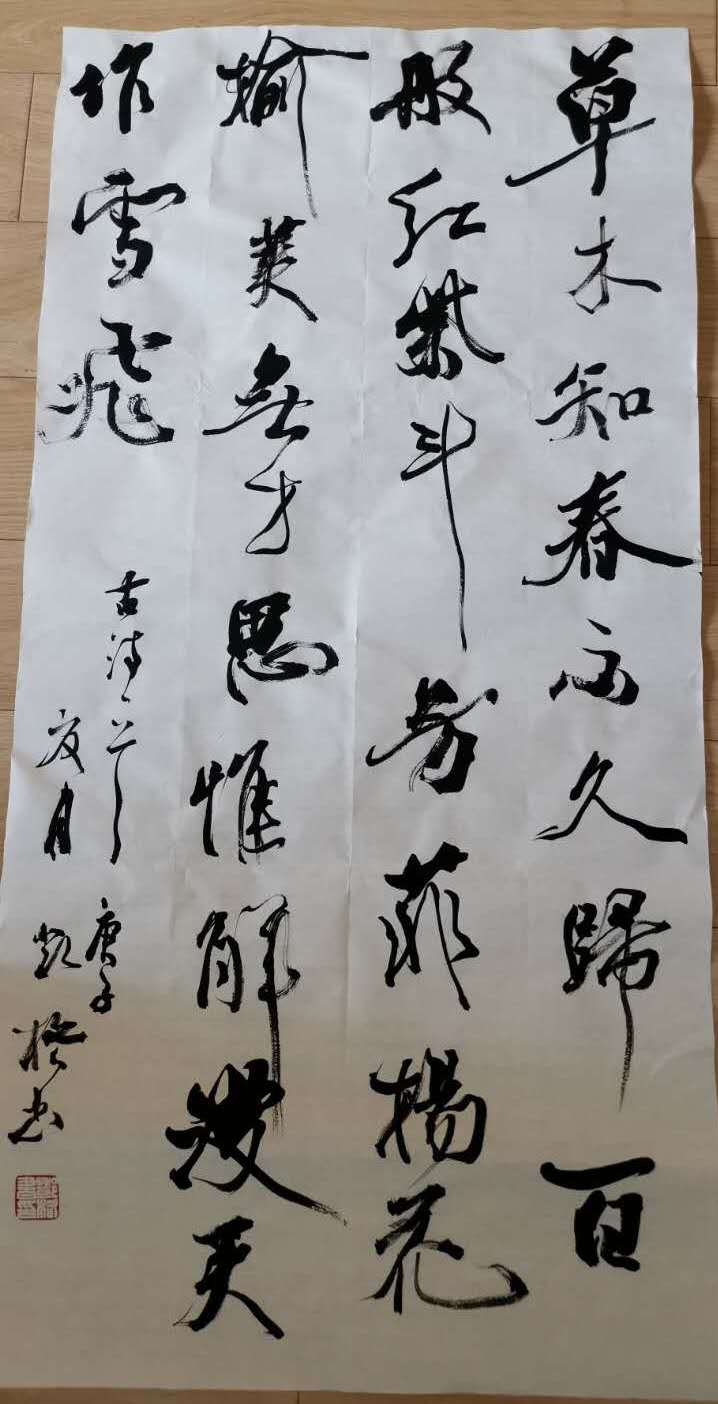 草木知春不久歸百
般红紫斗芳菲楊花
榆荚無才思惟解漫天
作雪飛
古诗一首庚子
夏月凯书